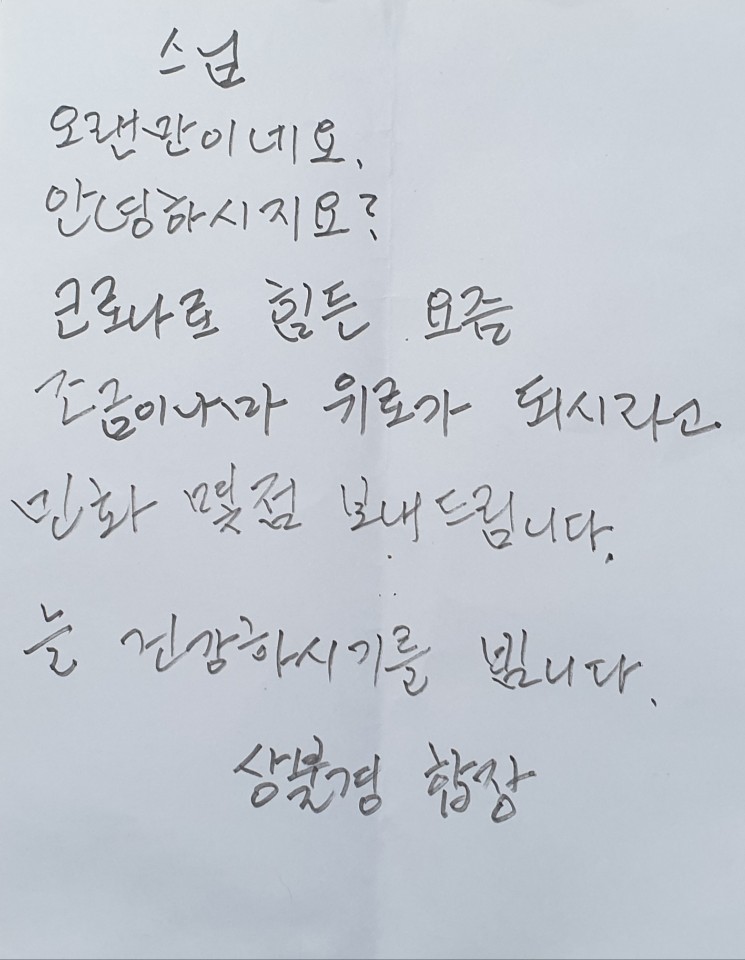 스님
오랜만이네요.
안녕하시지요?
코로나로 힘든 요즘
조금이나마 위로가 되시라고
민화 몇점 보내드립니다.
늘 건강하시기를 빕니다.
상불경 합장